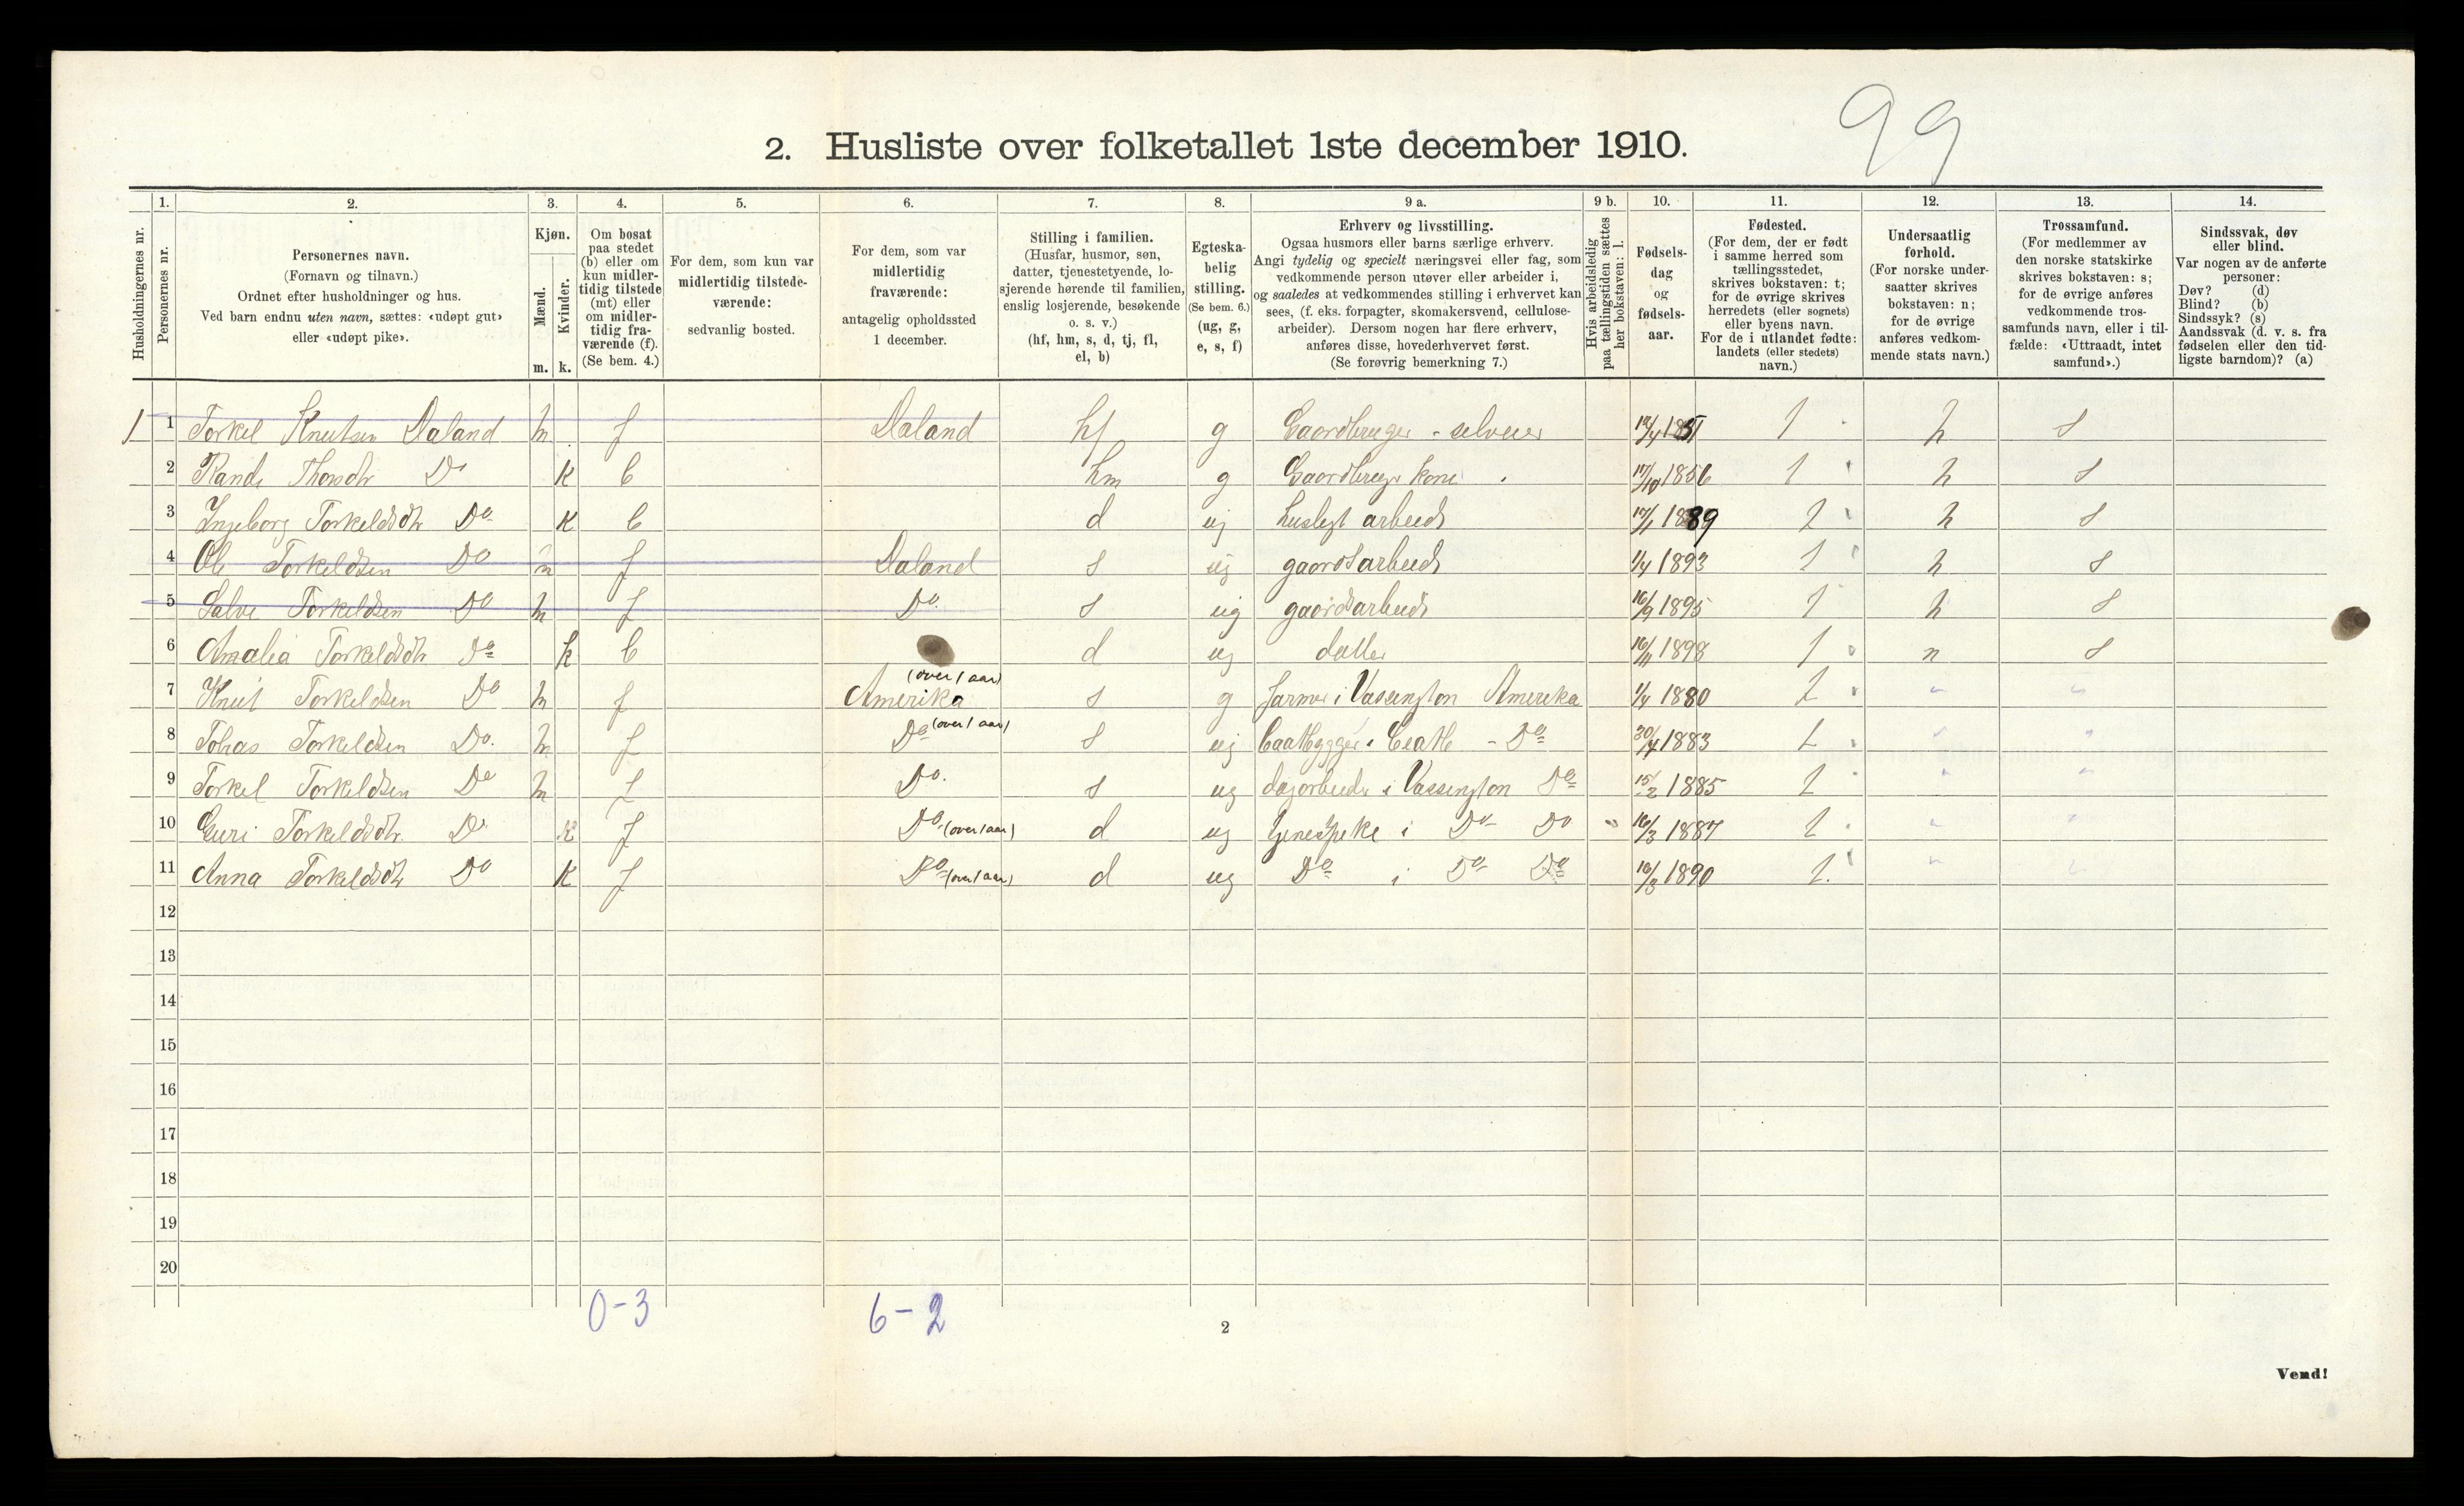 99
2. Husliste over folketallet 1ste december 1910.
Husholdningernes nr.
1.
Personernes nr.
2.
Personernes navn.
(Fornavn og tilnavn.)
Ordnet efter husholdninger og hus.
Ved barn endnu uten navn, sættes: «udøpt gut»
eller «udøpt pike».
3.
Kjøn.
Mænd.
Kvinder.
m. k.
4.
Om bosat
paa stedet
(b) eller om
kun midler-
tidig tilstede
(mt) eller
om midler-
tidig fra-
værende (f).
(Se bem. 4.)
5.
For dem, som kun var
midlertidig tilstede-
værende:
sedvanlig bosted.
6.
For dem, som var
midlertidig
fraværende:
antagelig opholdssted
1 december.
7.
Stilling i familien.
(Husfar, husmor, søn,
datter, tjenestetyende, lo-
sjerende hørende til familien,
enslig losjerende, besøkende
o. s. v.)
(hf, hm, s, d, tj, fl,
el, b)
8.
Egteska-
belig
stilling.
(Se bem. 6.)
(ug, g,
e, s, f)
9 a.
Erhverv og livsstilling.
Ogsaa husmors eller barns særlige erhverv.
Angi tydelig og specielt næringsvei eller fag, som
vedkommende person utøver eller arbeider i,
og saaledes at vedkommendes stilling i erhvervet kan
sees, (f. eks. forpagter, skomakersvend, cellulose-
arbeider). Dersom nogen har flere erhverv,
anføres disse, hovederhvervet først.
(Se forøvrig bemerkning 7.)
9 b.
Hvis arbeidsledig
paa tællingstiden sættes
her bokstaven: l.
10.
Fødsels-
dag
og
fødsels-
aar.
11.
Fødested.
(For dem, der er født
i samme herred som
tællingsstedet,
skrives bokstaven: t;
for de øvrige skrives
herredets (eller sognets)
eller byens navn.
For de i utlandet fødte:
landets (eller stedets)
navn.)
12.
Undersaatlig
forhold.
(For norske under-
saatter skrives
bokstaven: n;
for de øvrige
anføres vedkom-
mende stats navn.)
13.
Trossamfund.
(For medlemmer av
den norske statskirke
skrives bokstaven: s;
for de øvrige anføres
vedkommende tros-
samfunds navn, eller i til-
fælde: «Uttraadt, intet
samfund».)
14.
Sindssvak, døv
eller blind.
Var nogen av de anførte
personer:
Døv? (d)
Blind? (b)
Sindssyk? (s)
Aandssvak (d. v. s. fra
fødselen eller den tid-
ligste barndom)? (a)
1 1 Torkel Knutsen Daland m f Daland hf g Gaardbruger - selveier 1851 t n s
2 k b hm g kone 17/10 1856 t n s
3 Ingeborg Torkeldsdtr Do k b d ug huslegt arbeid 17/1 1889 t n s
4 Ole Torkeldsen Do m f Daland s ug gaardsarbeid 1/4 1893 t n s
5 Salve Torkeldsen Do m f Do s ug gaardsarbeid 16/9 1895 t n s
6 Amalia Torkeldsdtr Do k b d ug datter 16/11 1898 t n s
7 Knut Torkeldsen Do m f Amerika (over 1 aar) s g farmer i Vassington Amerika 1/4 1880 t
8 Tobias Torkeldsen Do m f Do (over 1 aar) s ug Do 1883 t
9 Torkel Torkeldsen Do m f Do s ug i Vassington Do 15/2 1885 t
10 Guri Torkeldsdtr Do k f Do (over 1 aar) d ug i Do Do 16/3 1887 t
11 Anna Torkeldsdtr Do k f Do (over 1 aar) d ug Do i Do Do 16/3 1890 t
12
13
14
15
16
17
18
19
20
0-3 6-2
2
Vend!